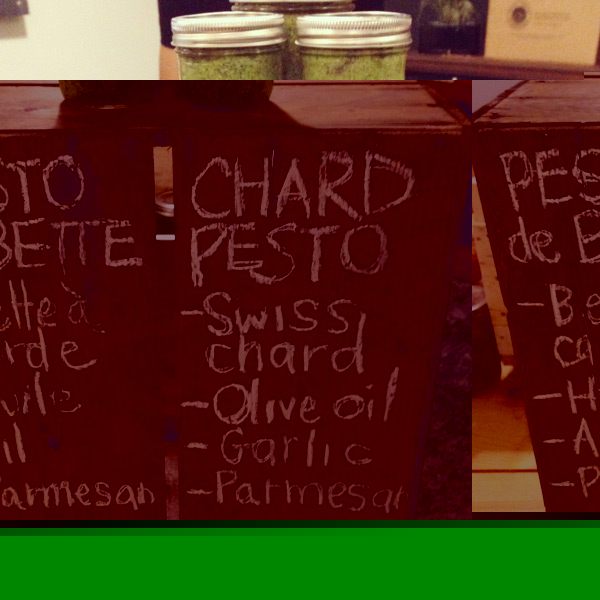 CHARD
PESTO
-Swiss
chard
-Olive oil
-Garlic
-Parmesan
STO
BETTE
rde
il
Parmesan
PES
de B
-Be
ca
-H
-A
-P